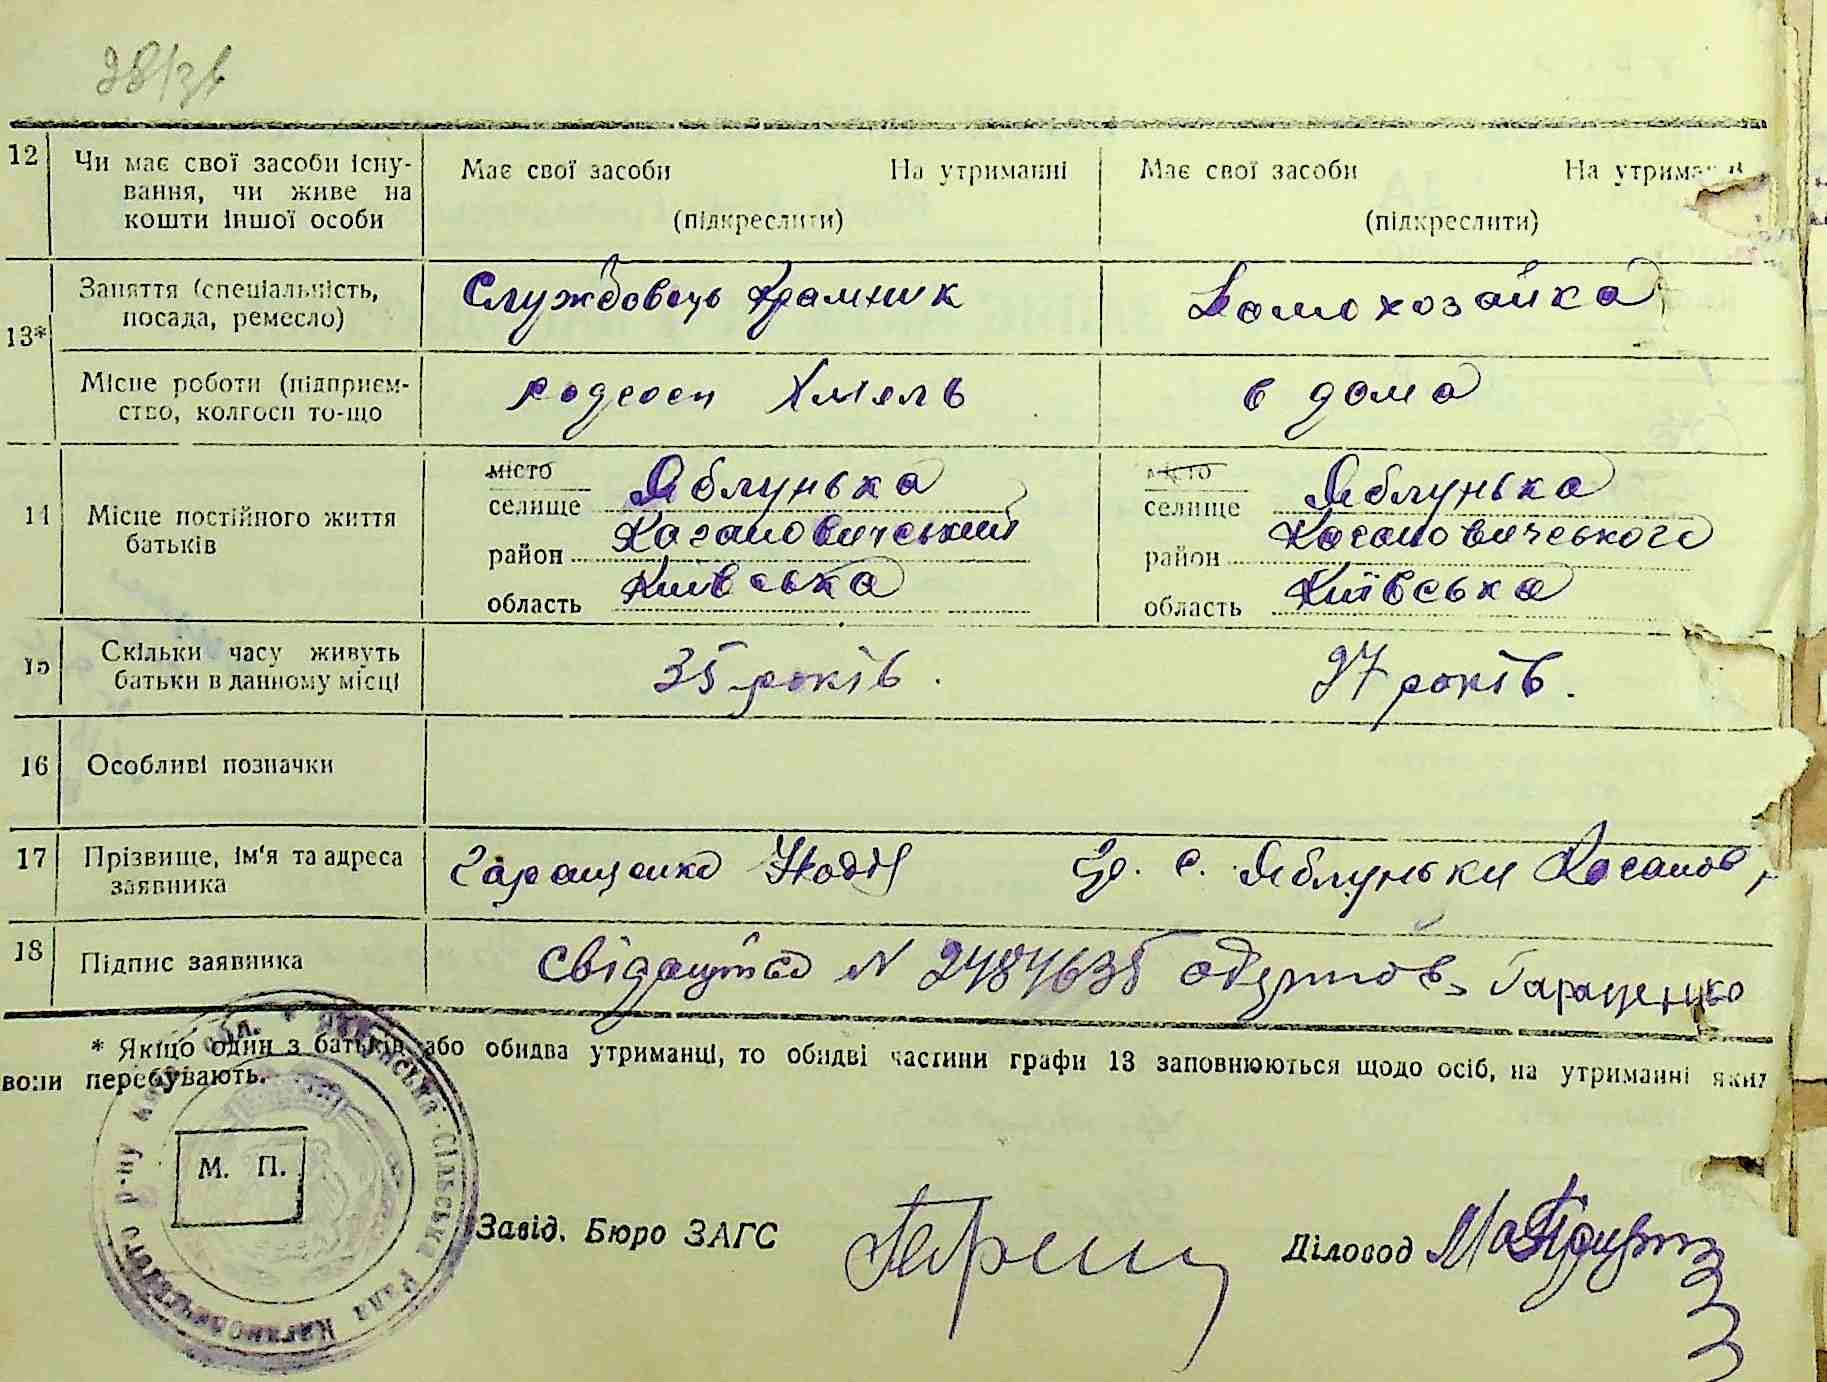 28/зв
12 Чи має свої засоби існу-
вання, чи живе на
кошти іншої особи
Має свої засоби На утриманні
(підкреслити)
Має свої засоби На утрима
(підкреслити)
13* Заняття (спеціальність,
посада, ремесло)
Службовець Крамник
Домохозайка
Місце роботи (підприєм-
ство, колгосп то-що
радгосп Хмель
в дома
14 Місце постійного життя
батьків
місто
селище Яблунька
район Кагановичський
область Київська
місто
селище Яблунька
район Кагановичського
область Київська
15 Скільки часу живуть
батьки в данному місці
35 років.
27 років.
16 Особливі позначки
17 Прізвище, ім'я та адреса
заявника
Гаращенко Надія с. Яблуньки Каганов
18 Підпис заявника
Свідоцтво N 2484635 Гаращенко
* Якщо один з батьків або обидва утриманці, то обидві частини графи 13 заповнюються щодо осіб, на утриманні яких
вони перебувають.
М. П.
Сільська Рада Кагановичського р-ну
Завід. Бюро ЗАГС
Діловод